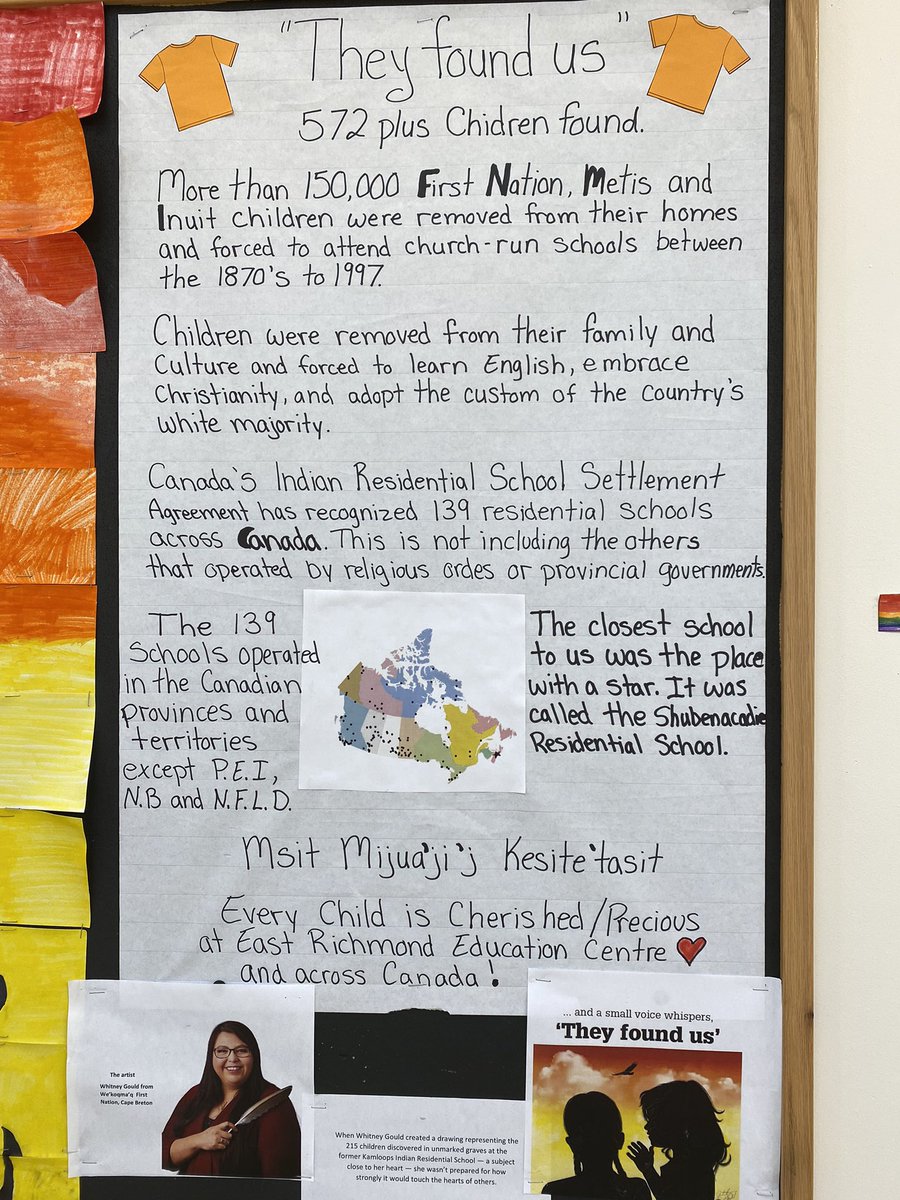 "They found us"
572 plus Chidren found.
More than 150,000 First Nation, Metis and
Inuit children were removed from their homes
and forced to attend church-run schools between
the 1870's to 1997.
Children were removed from their family and
Culture and forced to learn English, embrace
Christianity, and adopt the custom of the country's
white majority.
Canada's Indian Residential School Settlement
Agreement has recognized 139 residential schools
across Canada. This is not including the others
that operated by religious ordes or provincial governments.
The 139
Schools operated
in the Canadian
provinces and
territories
except P.E.I,
N.B and N.F.L.D.
The closest school
to us was the place
with a star. It was
called the Shubenacadie
Residential School.
Msit Mijua'ji'j Kesite'tasit
Every Child is Cherished/Precious
at East Richmond Education Centre
and across Canada!
The artist
Whitney Gould from
We'koqma'q First
Nation, Cape Breton
When Whitney Gould created a drawing representing the
215 children discovered in unmarked graves at the
former Kamloops Indian Residential School — a subject
close to her heart — she wasn't prepared for how
strongly it would touch the hearts of others.
... and a small voice whispers,
'They found us'